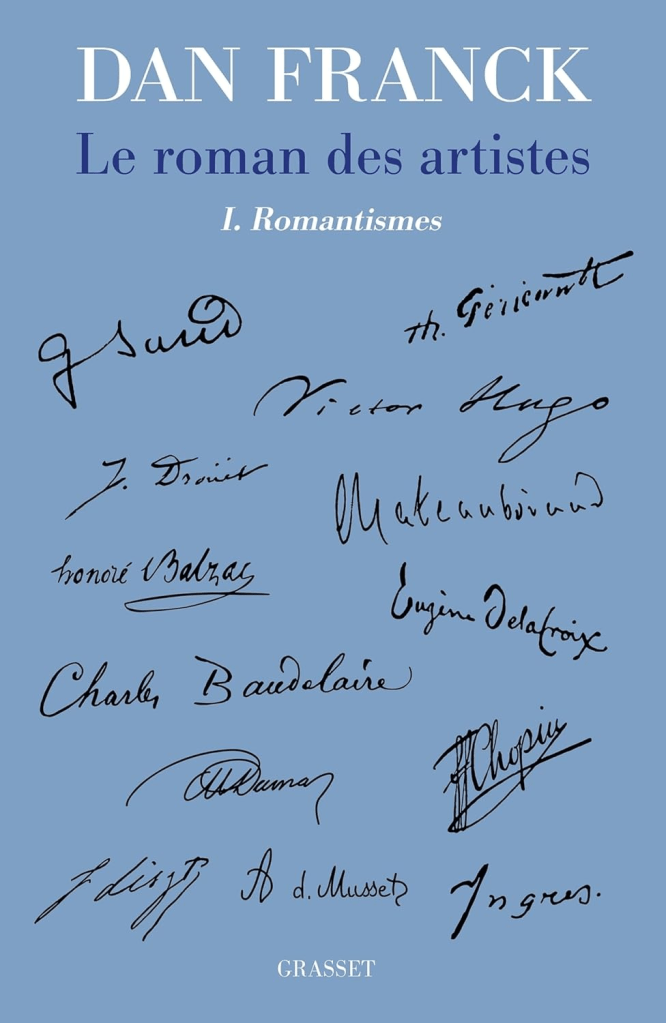 DAN FRANCK
Le roman des artistes
I. Romantismes
G Sand
Th. Géricault
Victor Hugo
J. Drouet
Chateaubriand
honoré Balzac
Eugène Delacroix
Charles Baudelaire
Al Dumas
FF Chopin
F Liszt
A d. Musset
Ingres.
GRASSET